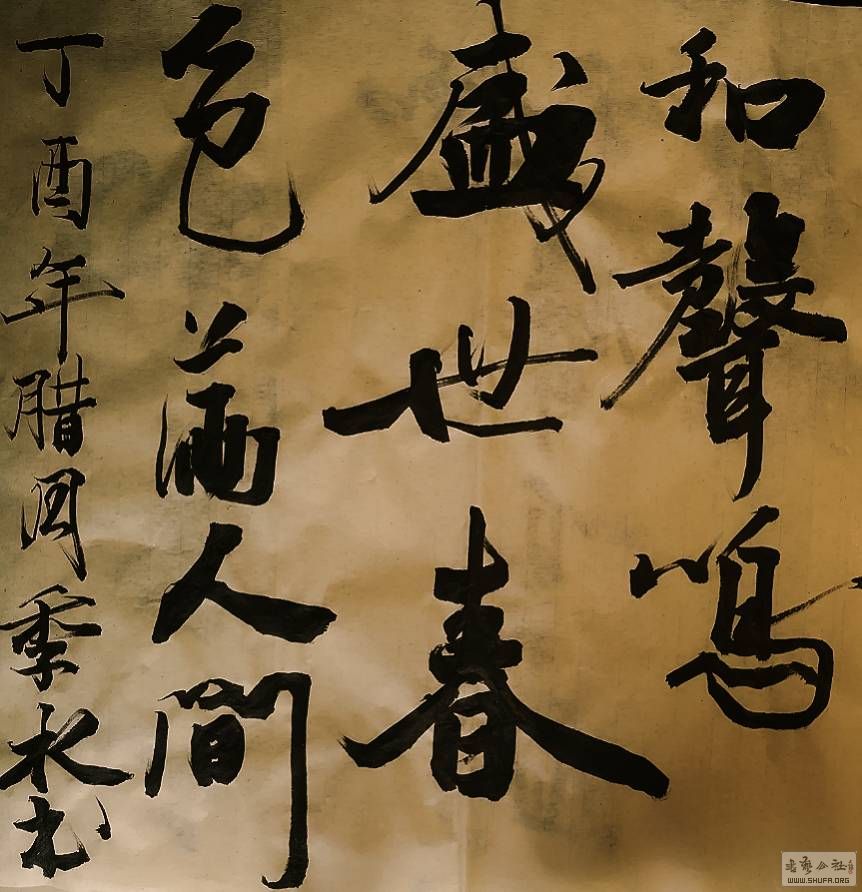 和聲鳴
盛世春
色滿人間
丁酉年腊月季水书
WWW.SHUFA.ORG